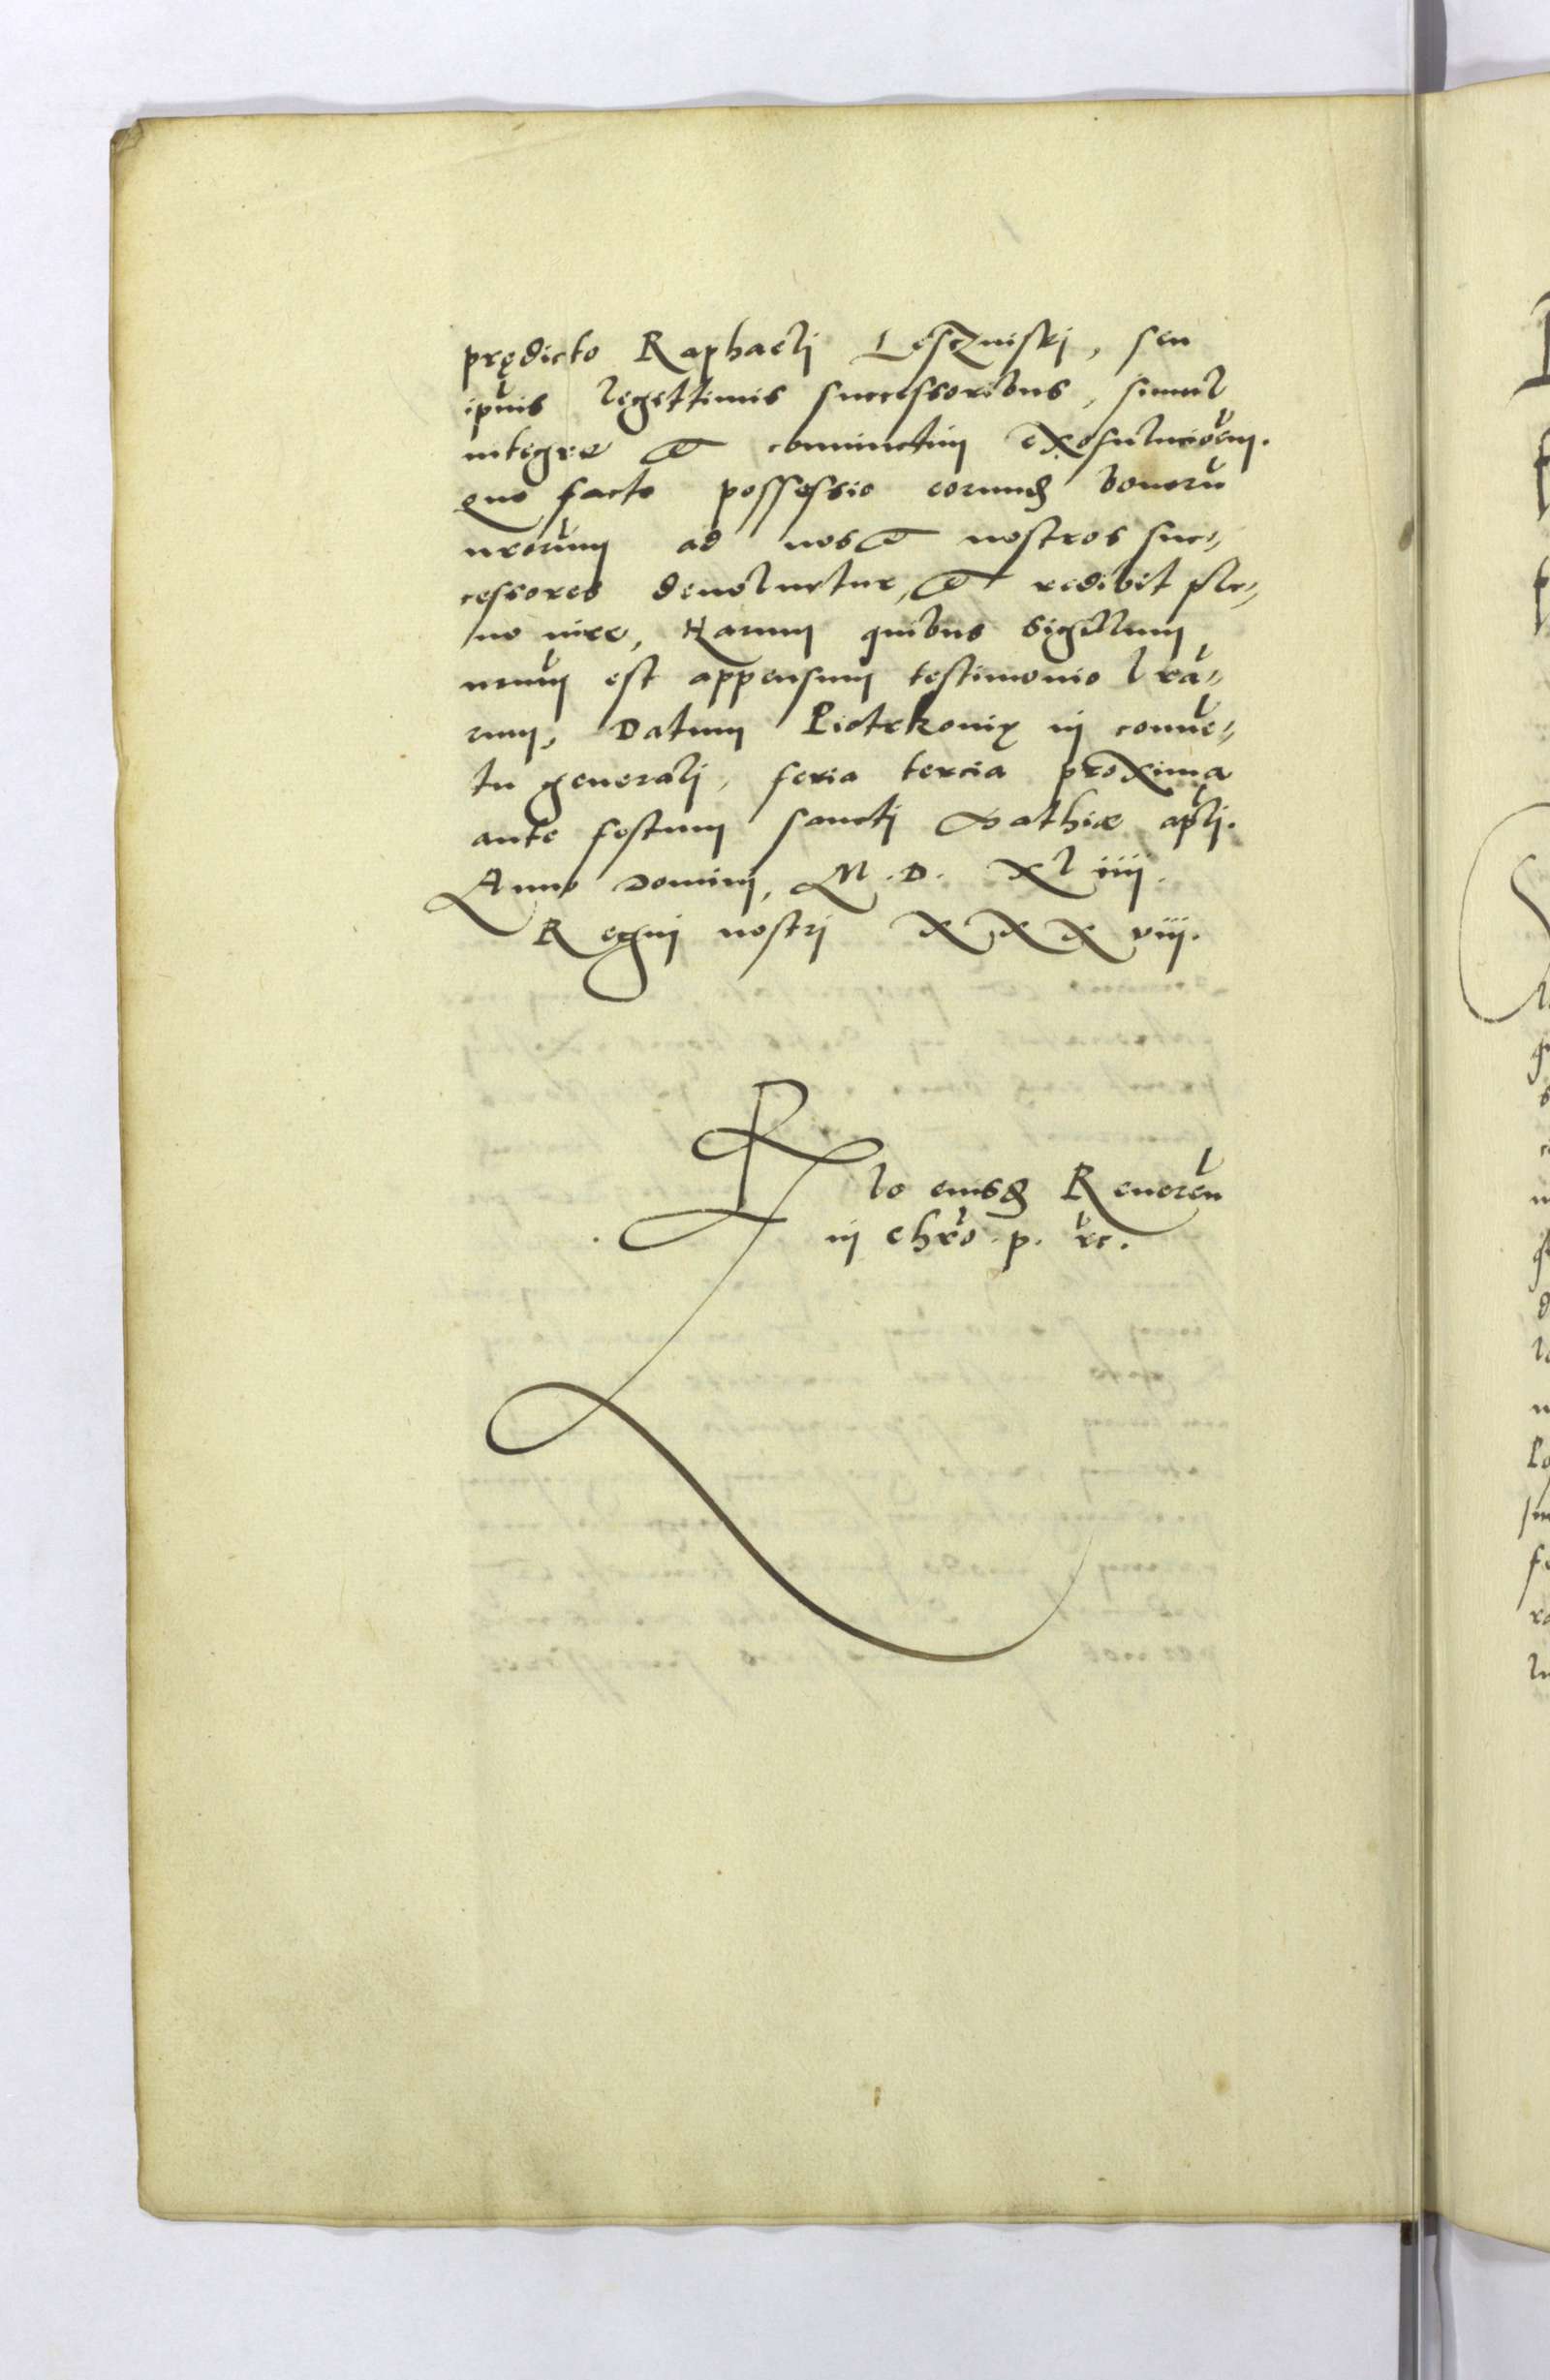 prędicto Raphaeli Lesczniski, seu
ipuis legettimis successoribus, simul
integre et coniunctim exosulucioem.
quo facto possessio eorund bonoru
nrorum ad nos et nostros suc-
cessores devoluetur, et redibit ple-
no iure, Harum quibus Sigillum
nrum est appensum testimonio lra-
rum, Datum Piotrkoviæ in conve-
tu generali, feria tercia proxima
ante festum sancti Mathiæ apli.
Anno Domini, M. D. xl iiij.
Regni nostri xxx viij.
Rlo eiusd Reveren
in chro. p. rc.